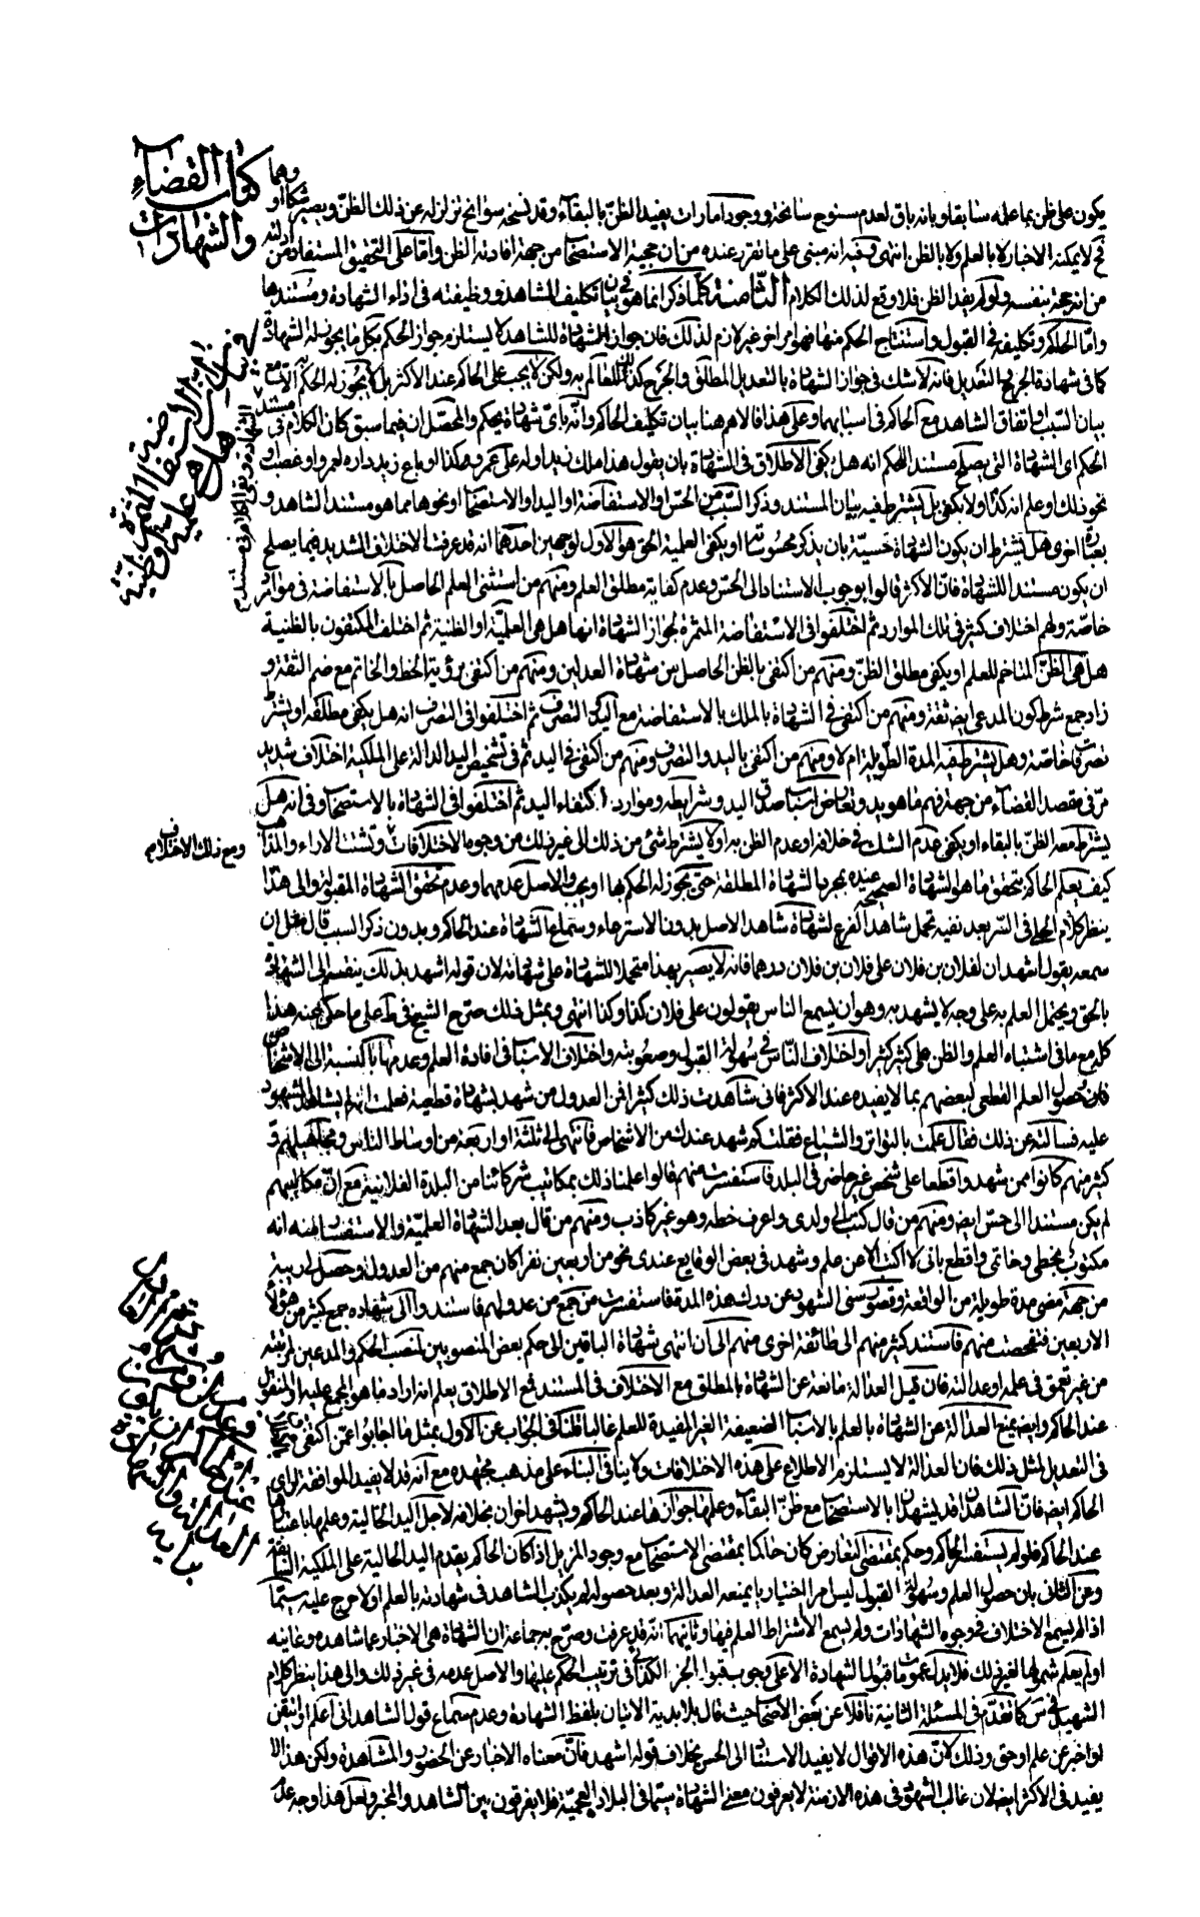 كتاب القضاء
والشهادات
يكون على ظن بما علمه سابقا وبانه باق لعدم سنوح سانحة ووجود امارات يفيد الظن بالبقاء وقد تسنحه سوانح تزلزله عن ذلك الظن ويصير شكا او وهما
فح لا يمكنه الاخبار لا بالعلم ولا بالظن انتهى وفيه انه مبنى على ما تقرر عنده من ان حجية الاستصحاب من جهة افادته الظن واما على التحقيق المستفاد من ادلته
من انه حجة بنفسه ولو لم يفد الظن فلا وقع لذلك الكلام الثامنة كلما ذكر انما هو في بيان تكليف الشاهد ووظيفته فى اداء الشهادة ومستندها
واما الحاكم وتكليفه فى القبول واستنتاج الحكم منها فهو امر اخر غير لازم لذلك فان جواز الشهادة للشاهد لا يستلزم جواز الحكم بكل ما يجوز له الشهادة
كما فى شهادة الجرح والتعديل فانه لا شك فى جواز الشهادة بالتعديل المطلق والجرح كذلك للعالم به ولكن لا يجب على الحاكم عند الاكثر بل لا يجوز له الحكم به الا مع
بيان السبب او اتفاق الشاهد مع الحاكم فى اسبابهما وعلى هذا فالاهم هنا بيان تكليف الحاكم وانه باى شهادة يحكم والمحصل ان فيما سبق كان الكلام فى مستند
الحكم اى الشهادة التى يصلح مستند الحكم انه هل يكفى الاطلاق فى الشهادة بان يقول هذا ملك زيد او له على عمرو هكذا او باع زيد داره لعمرو او غصب او
نحو ذلك او علم انه كذا ولا يكفى بل يشترط فيه بيان المستند وذكر السبب من الحس او الاستفاضة او اليد او الاستصحاب او نحوها مما هو مستند الشاهد و
بعبارة اخرى هل يشترط ان يكون الشهادة حسية بان يذكر محسوسا او يكفى العلمية الحق هو الاول لوجهين احدهما انه قد عرفت الاختلاف الشديد فيما يصلح
ان يكون مستندا للشهادة فان الاكثر قالوا بوجوب الاستناد الى الحس وعدم كفاية مطلق العلم ومنهم من استثنى العلم الحاصل بالاستفاضة فى موارد
خاصة ولهم اختلاف كثير فى تلك الموارد ثم اختلفوا فى الاستفاضة المثمرة لجواز الشهادة انها هل هى العلمية او الظنية ثم اختلف المكتفون بالظنية
هل هى الظن المتاخم للعلم او يكفى مطلق الظن ومنهم من اكتفى بالظن الحاصل من شهادة العدلين ومنهم من اكتفى برؤية الخط والخاتم مع ضم الثقة و
زاد جمع شرط كون المدعى ايضا ثقة ومنهم من اكتفى فى الشهادة بالملك بالاستفاضة مع اليد والتصرف ثم اختلفوا فى التصرف انه هل يكفى مطلقه او يشترط
تصرفا خاصة وهل يشترط فيه المدة الطويلة ام لا ومنهم من اكتفى باليد والتصرف ومنهم من اكتفى فى اليد ثم فى تشخيص اليد الدالة على الملكية اختلاف شديد
مر فى مقصد القضاء من جهة فهم ما هو يد وتعارض اسباب صدق اليد وشرايطه وموارد اكتفاء اليد ثم اختلفوا فى الشهادة بالاستصحاب وفى انه هل
يشترط معه الظن بالبقاء او يكفى عدم الشك فى خلافه او عدم الظن به او لا يشترط شئ من ذلك الى غير ذلك من وجوه الاختلافات وتشتت الاراء والمذاهب
ومع ذلك الاختلاف
كيف يعلم الحاكم تحقق ما هو الشهادة الصحيحة عنده بمجرد الشهادة المطلقة حتى يجوز له الحكم بها او يجب والاصل عدمهما وعدم تحقق الشهادة المقبولة والى هذا
ينظر كلام الحلى فى السرائر بعد نفيه تحمل شاهد الفرع لشهادة شاهد الاصل بدون الاسترعاء وسماع الشهادة عند الحاكم وبدون ذكر السبب قال مثل ان
سمعه يقول اشهد ان لفلان بن فلان على فلان بن فلان درهما فانه لا يصير بهذا متحملا للشهادة على شهادته لان قوله اشهد بذلك ينقسم الى الشهادة
بالحق ويحتمل العلم به على وجه لا يشهد به وهو ان يسمع الناس يقولون على فلان كذا وكذا انتهى وبمثل ذلك صرح الشيخ فى ط على ما حكى عنه هذا
كله مع ما فى اشتباه العلم والظن على كثير كثيرا واختلاف الناس فى سهولة القبول وصعوبته واختلاف الاسباب فى افادة العلم وعدمها بالنسبة الى الاشخاص
فان حصول العلم القطعى لبعضهم بما لا يفيده عند الاكثر فانى شاهدت ذلك كثيرا فمن العدول من شهد بشهادة قطعية فعلمت انه لم يشاهد المشهود
عليه فسالته عن ذلك فقال علمت بالتواتر والشياع فقلت كم شهد عندك من الاشخاص فانتهى الى ثلثة او اربعة من اوساط الناس ومجاهيلهم و
كثير منهم كانوا ممن شهدوا قطعا على شخص غير حاضر فى البلد فاستفسرت منهم قالوا علمنا ذلك بمكاتيب شركائنا من البلدة الفلانية مع ان مكاتيبهم
لم يكن مستندا الى حس ايضا ومنهم من قال كتب الى ولدى واعرف خطه وهو غير كاذب ومنهم من قال بعد الشهادة العلمية والاستفسار منه انه
مكتوب بخطى وخاتمى واقطع بانى لا اكتب الا عن علم وشهد فى بعض الوقايع عندى نحو من اربعين نفرا كان جمع منهم من العدول وحصل لى ريبة
من جهة مضى مدة طويلة من الواقعة وقصور سنى الشهود عن درك هذه المدة فاستفسرت من جمع من عدولهم فاستندوا الى شهادة جمع كثير من هؤلاء
الاربعين فتفحصت منهم فاستند كثير منهم الى طائفة اخرى منهم الى ان انتهى شهادة الباقين الى حكم بعض المنصوبين لمنصب الحكم والمدعين لمرتبته
من غير تعمق فى علمه او عدالته فان قيل العدالة مانعة عن الشهادة بالمطلق مع الاختلاف فى المستند فمع الاطلاق يعلم انه اراد ما هو المجمع عليه او المقبول
عند الحاكم وايضا يمنع العدالة عن الشهادة بالعلم بالاسباب الضعيفة الغير المفيدة للعلم غالبا قلنا فى الجواب عن الاول بمثل ما اجابوا عمن اكتفى
فى التعديل لمثل ذلك فان العدالة لا يستلزم الاطلاع على هذه الاختلافات ولا ينافى البناء على مذهب مجتهده مع انه قد لا يفيد الموافقة لراى
الحاكم ايضا فان الشاهدان قد يشهدان بالاستصحاب مع ظن البقاء وعلمهما جوازها عند الحاكم ويشهد اخران بخلافه لاجل اليد الحالية وعلمهما باعتبارها
عند الحاكم فلو لم يستفسر الحاكم وحكم بمقتضى التعارض كان حاكما بمقتضى الاستصحاب مع وجود المزيل اذا كان الحاكم يقدم اليد الحالية على الملكية السابقة
وعن الثانى بان حصول العلم وسهولة القبول ليس امرا اختياريا يمنعه العدالة وبعد حصوله لم يكذب الشاهد فى شهادته بالعلم او لا حرج عليه سيما
اذا لم يسمع الاختلاف فى وجوه الشهادات ولم يسمع الاشتراط العلم فيها وثانيهما انه قد عرفت وصرح به جماعة ان الشهادة هى الاخبار عما شاهده وعاينه
او لم يعلم شمولها لغير ذلك فلا يدل عمومات قبول الشهادة الا على وجوب قبول الخبر الكذائى فى ترتيب الحكم عليها والاصل عدمه فى غير ذلك والى هذا ينظر كلام
الشهيد فى س كما تقدم فى المسئلة الثانية ناقلا عن بعض الاصحاب حيث قال بلابدية الاتيان بلفظ الشهادة وعدم سماع قول الشاهد انى اعلم او اتيقن
او اخبر عن علم او حق وذلك كان هذه الاقوال لا يفيد الاستناد الى الحس بخلاف قوله اشهد فان معناه الاخبار عن الحضور والمشاهدة ولكن هذا لا
يفيد فى الاكثر ايضا لان غالب الشهود فى هذه الازمنة لا يعرفون معنى الشهادة سيما فى البلاد العجمية فلا يفرقون بين الشاهد والمخبر ولعل هذا وجه عدم